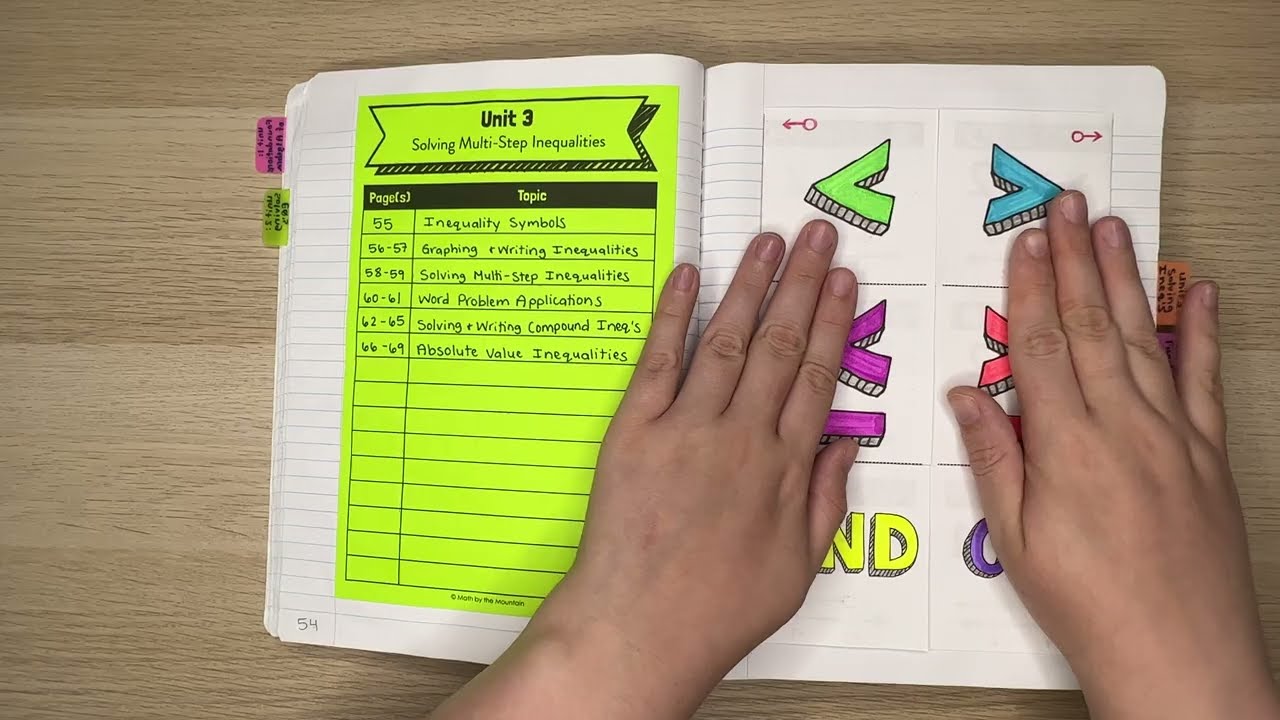 Unit 3
Solving Multi-Step Inequalities
Page(s) Topic
55 Inequality Symbols
56-57 Graphing + Writing Inequalities
58-59 Solving Multi-Step Inequalities
60-61 Word Problem Applications
62-65 Solving + Writing Compound Ineq's
66-69 Absolute Value Inequalities
© Math by the Mountain
54
<
>
ND
Unit 1:
Foundations
of Algebra
Unit 2:
Solving
Eq's
Unit 3
Solving
Ineq's